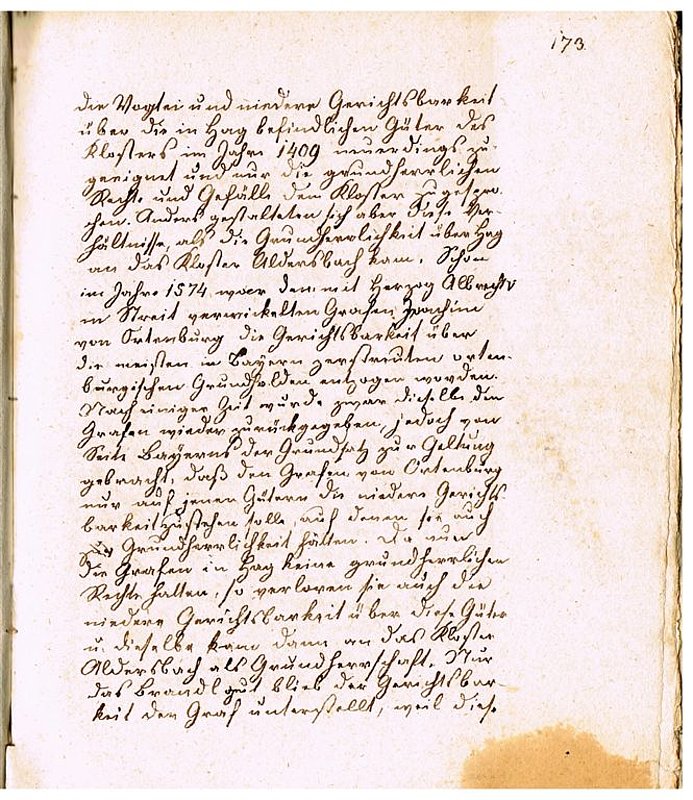 173.
die Vogtei und niedere Gerichtsbarkeit
über die in Hag befindlichen Güter des
Klosters im Jahre 1409 neuerdings zu-
geeignet und nur die grundherrlichen
Rechte und Gefälle dem Kloster zugespro-
chen. Anders gestalteten sich aber diese Ver-
hältnisse, als die Grundherrlichkeit über Hag
an das Kloster Aldersbach kam. Schon
im Jahre 1574 war dem mit Herzog Albrecht V
in Streit verwickelten Grafen Joachim
von Ortenburg die Gerichtsbarkeit über
die meisten in Bayern zerstreuten orten-
burgischen Grundholden entzogen worden.
Nach einiger Zeit wurde zwar dieselbe den
Grafen wieder zurückgegeben, jedoch von
Seite Bayerns der Grundsatz zur Geltung
gebracht, daß den Grafen von Ortenburg
nur auf jenen Gütern die niedere Gerichts-
barkeit zustehen solle, auf denen sie auch
die Grundherrlichkeit hätten. Da nun
die Grafen in Hag keine grundherrlichen
Rechte hatten, so verloren sie auch die
niedere Gerichtsbarkeit über diese Güter
u. dieselbe kam dann an das Kloster
Aldersbach als Grundherrschaft. Nur
das Brandlgut blieb der Gerichtsbar-
keit der Graf unterstellt, weil diese